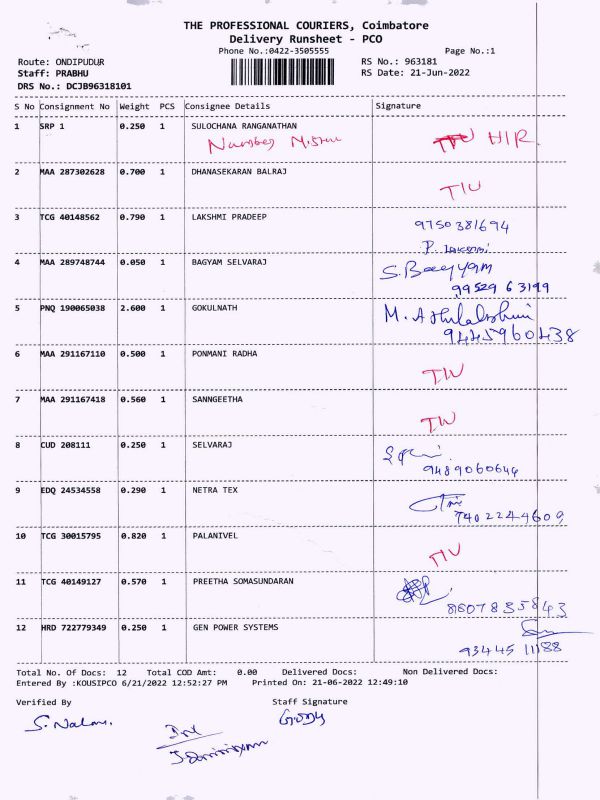 THE PROFESSIONAL COURIERS, Coimbatore
Delivery Runsheet - PCO
Phone No.:0422-3505555
Page No.:1
Route: ONDIPUDUR
RS No.: 963181
Staff: PRABHU
RS Date: 21-Jun-2022
DRS No.: DCJB96318101
S No Consignment No Weight PCS Consignee Details Signature
1 SRP 1 0.250 1 SULOCHANA RANGANATHAN
Number
HIR
2 MAA 287302628 0.700 1 DHANASEKARAN BALRAJ
TIU
3 TCG 40148562 0.790 1 LAKSHMI PRADEEP
9750381694
P.
4 MAA 289748744 0.050 1 BAGYAM SELVARAJ
S. Bagyyam
99529 63199
5 PNQ 190065038 2.600 1 GOKULNATH
M.
9445960438
6 MAA 291167110 0.500 1 PONMANI RADHA
TIU
7 MAA 291167418 0.560 1 SANNGEETHA
TIU
8 CUD 208111 0.250 1 SELVARAJ
9489060644
9 EDQ 24534558 0.290 1 NETRA TEX
7402244609
10 TCG 30015795 0.820 1 PALANIVEL
TIU
11 TCG 40149127 0.570 1 PREETHA SOMASUNDARAN
8607835843
12 HRD 722779349 0.250 1 GEN POWER SYSTEMS
93445 11188
Total No. Of Docs: 12 Total COD Amt: 0.00 Delivered Docs: Non Delivered Docs:
Entered By :KOUSIPCO 6/21/2022 12:52:27 PM Printed On: 21-06-2022 12:49:10
Verified By Staff Signature